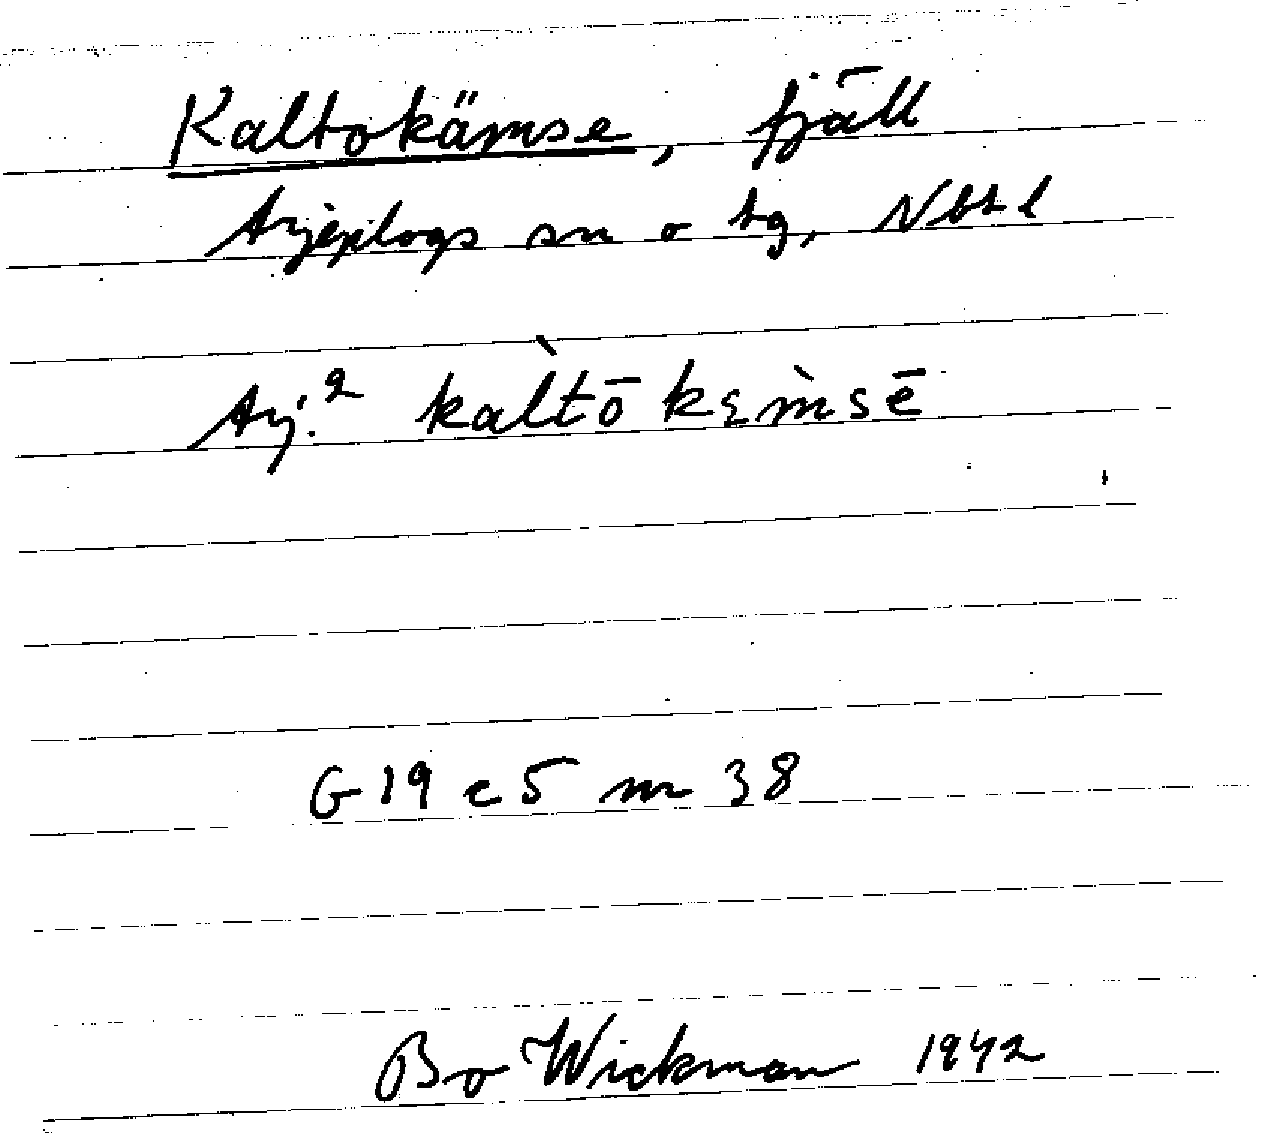 Kaltokämse, fjäll
Arjeplogs sn o tg, Nbtl
Arj.² kal̀tō kɛm̀sē
G 19 c 5 nr 38
Bo Wickman 1942